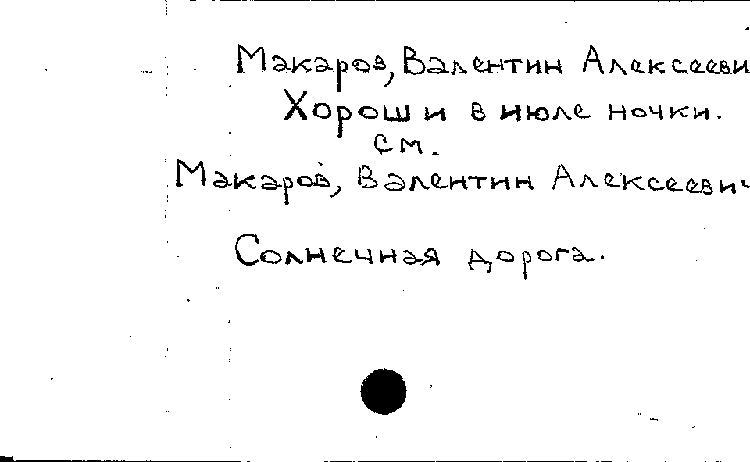 Макаров, Валентин Алексееви
Хороши в июле ночки.
см.
Макаров, Валентин Алексеевич
Солнечная дорога.